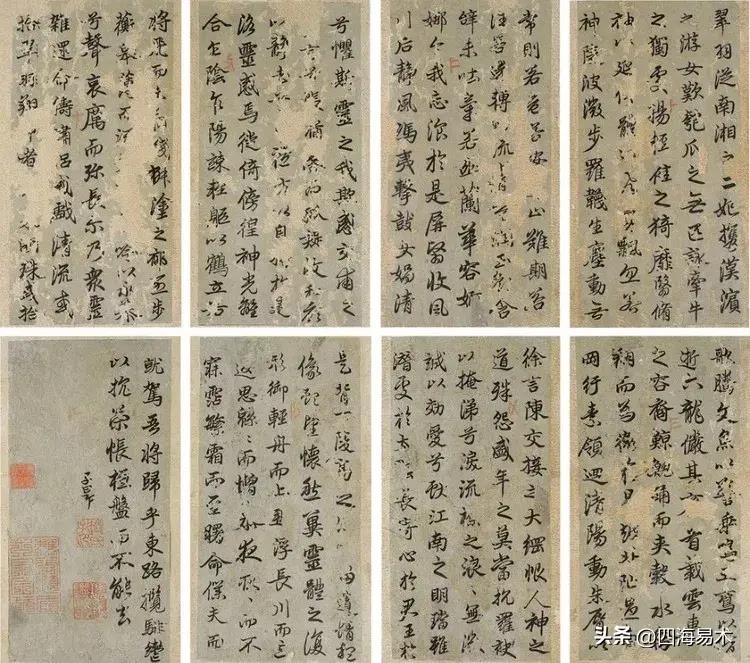 兮懼斯靈之我欺感交甫之
言悵猶而狐疑收和顏
以靜志以自持於是
洛靈感焉徙倚傍徨神光離
合乍陰乍陽竦輕軀以鶴立若
將飛而未椒塗之郁烈步
蘅薄吟以永慕
兮聲哀厲而弥長尔乃衆靈
雜遝命儔嘯呂或戲清流或
翔珠或拾
翠羽從南湘之二妃攜漢濱
之游女歎匏瓜之無匹詠牽牛
之獨處揚輕袿之猗靡翳脩
袖以延佇體飄忽若
神陵波微步羅韈生塵動無
常則若危若安止難期若
往若還轉流玉顏含
辭未吐氣若幽蘭華容婀
娜令我忘飡於是屏翳收風
川后靜馮夷擊鼓女媧清
歌騰文魚以警乘鳴玉鸞以偕
逝六龍儼其首載雲車
之容裔鯨鯢踊而夾轂水禽
翔而為衛於是越北沚過南
岡紆素領迴清陽動朱脣以
徐言陳交接之大綱恨人神之
道殊怨盛年之莫當抗羅袂
以掩涕兮淚流襟之浪浪無微
誠以效愛兮獻江南之明璫雖
潛處於太陰長寄心於君王
是背下陵高遺情想
像顧望懷愁冀靈體之復
形御輕舟而上浮長川而忘
返思緜緜而增慕夜耿耿而不
寐霑繁霜而至曙命僕夫而
就駕吾將歸乎東路攬騑轡
以抗策悵桓盤而不能去
子昂
头条 @四海易木